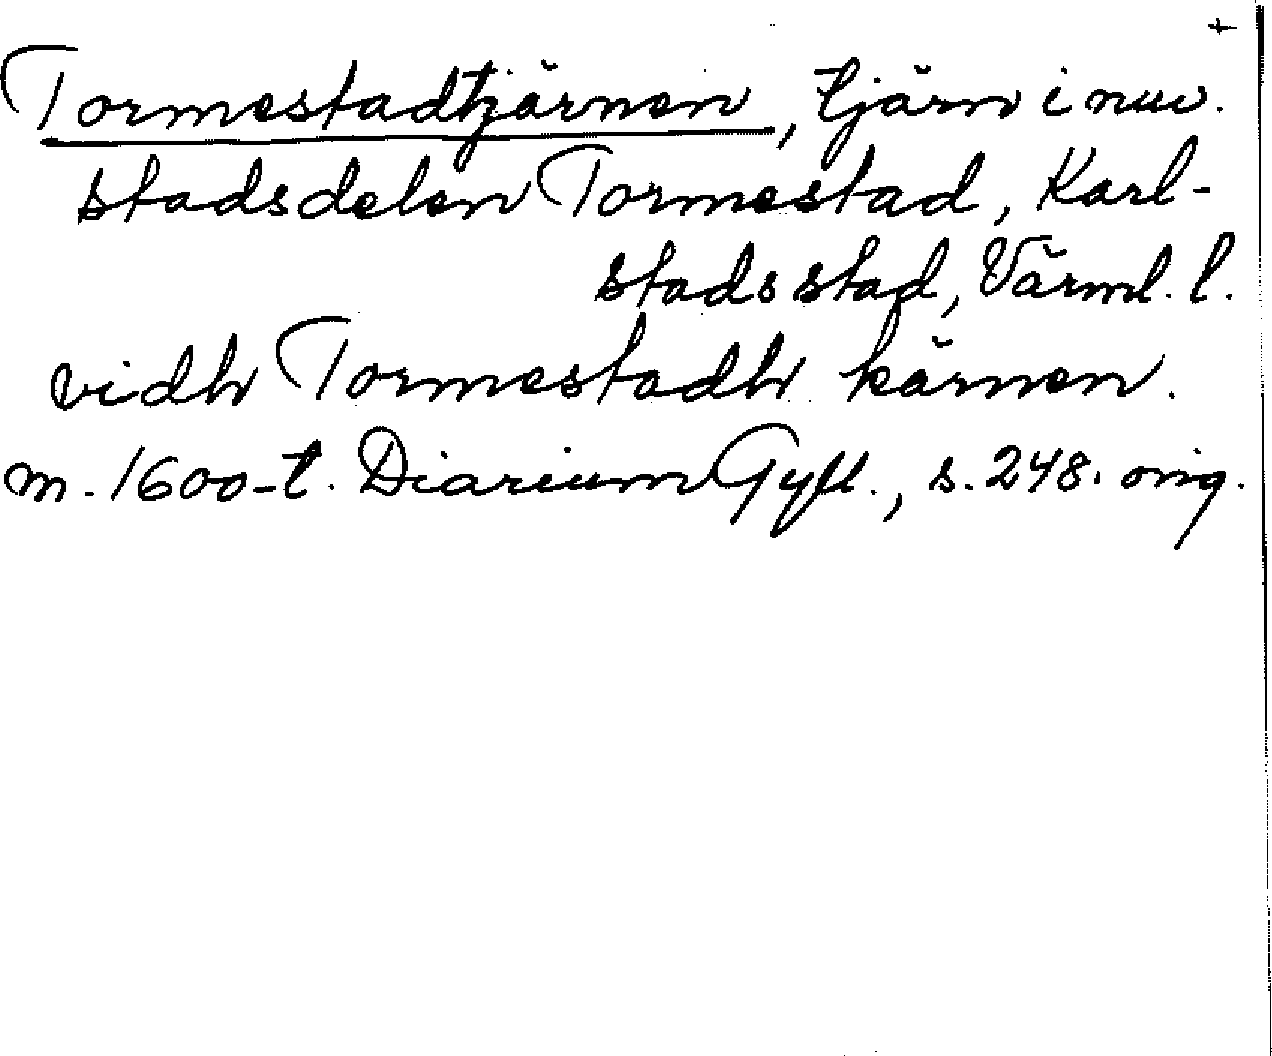 +
Tormestadtjärnen, tjärn i nuv.
stadsdelen Tormestad, Karl-
stads stad, Värml. l.
vidh Tormestadh kärnen.
m. 1600-t. Diarium Gyll., s. 248. orig.